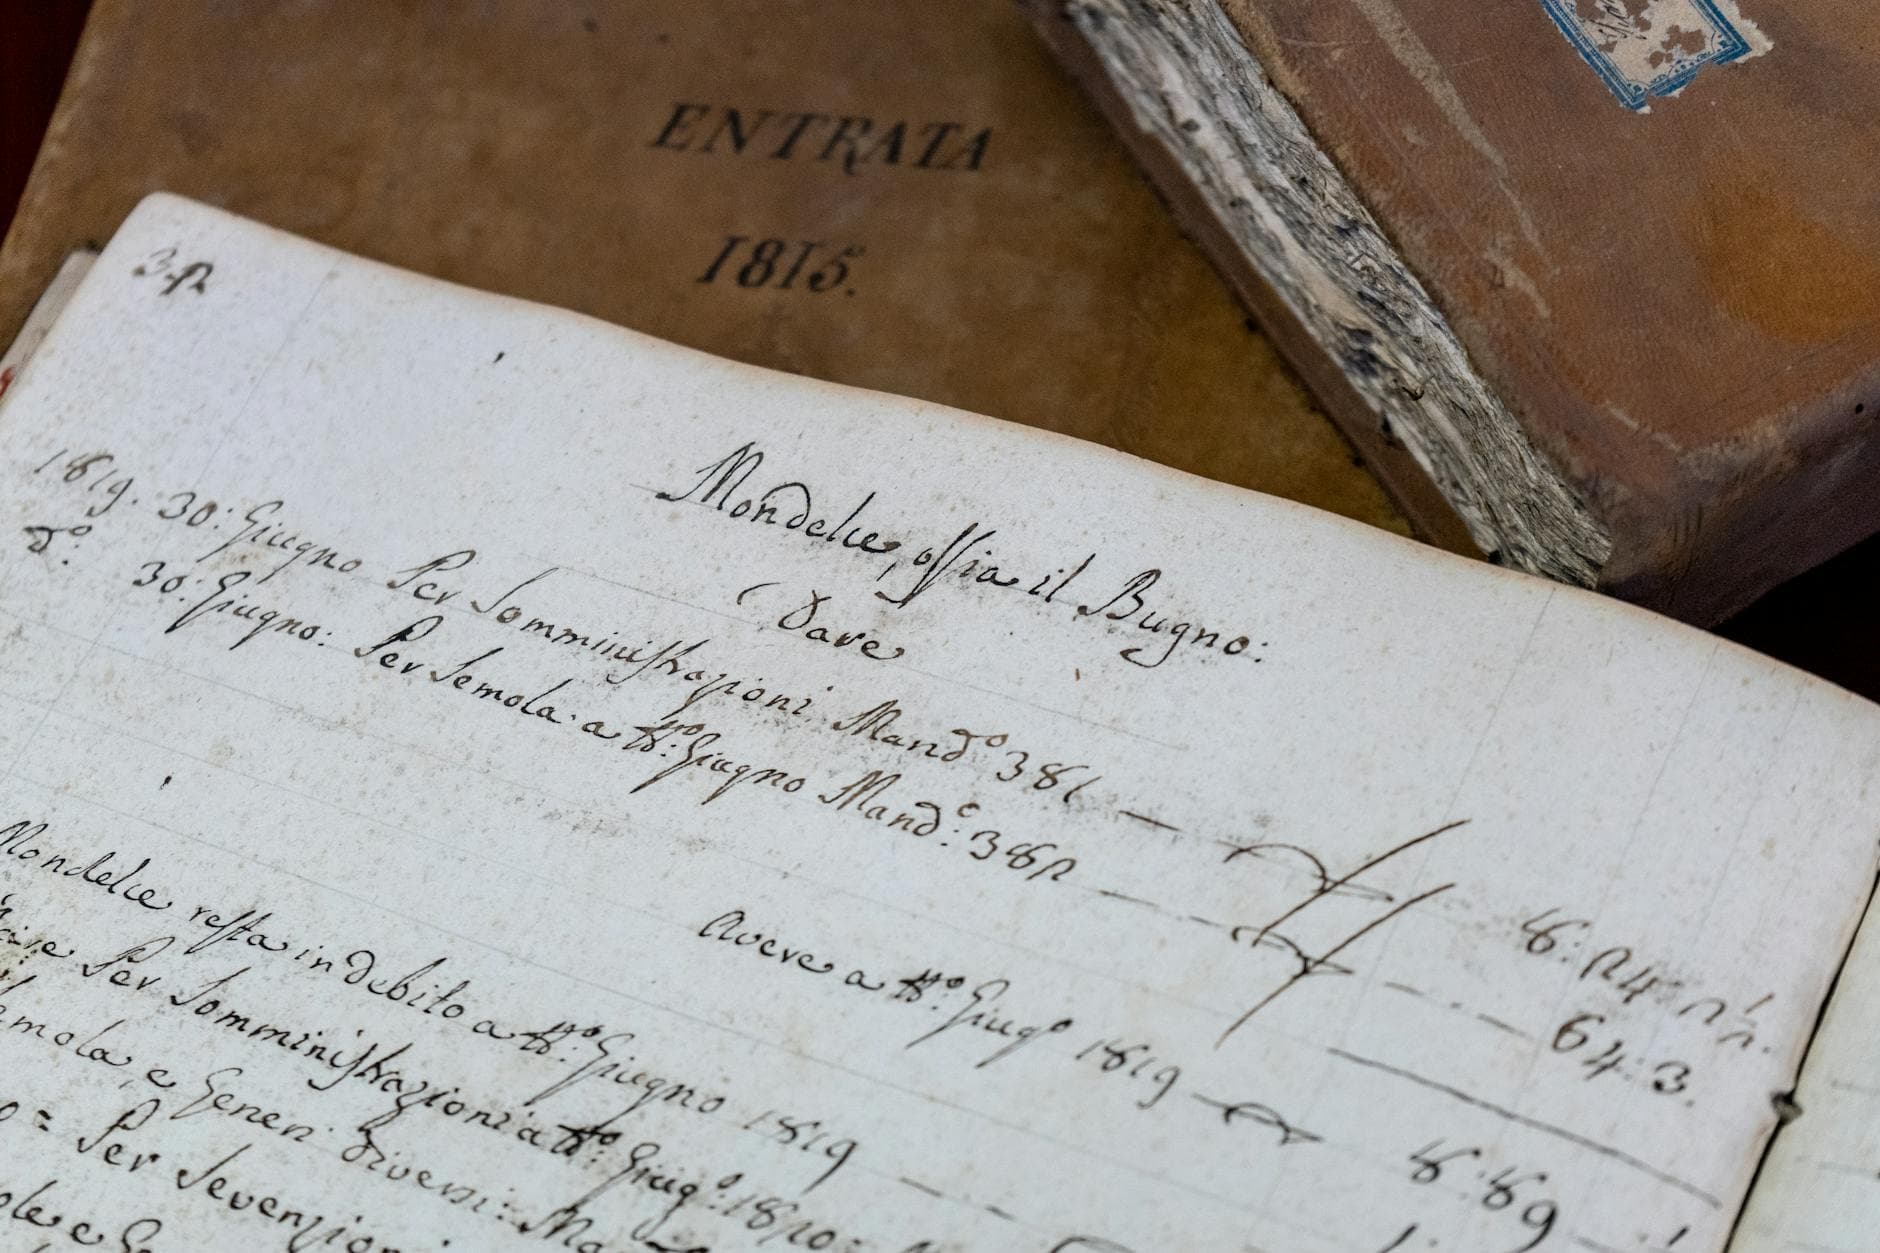 ENTRATA
1815.
32
Mondelce, ossia il Bugno:
Dare
1819. 30: Giugno Per Somministrazioni Mand.º 381
d.º: 30: Giugno: Per Semola a tt.º: Giugno Mand.º: 382
24
64: 3.
Avere a tt.º Giug.º 1819
89
Mondelce resta in debito a tt.º: Giugno 1819
Per Somministrazioni a tt.º: Giug.º: 1820:
e Generi diversi:
= Per Sevenzioni